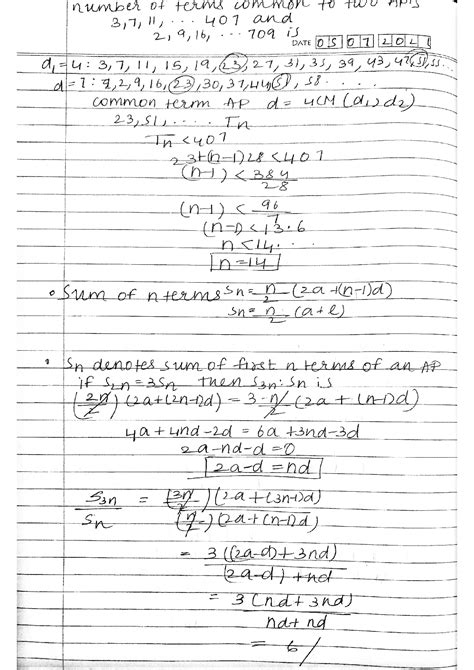 number of terms common to two APs
3,7,11,... 407 and
2,9,16,... 709 is
DATE 05072021
d₁=4: 3, 7, 11, 15, 19, 23, 27, 31, 35, 39, 43, 47, 51, 55..
d=7: 2, 9, 16, 23, 30, 37, 44, 51, 58....
common term AP d= LCM (d₁, d₂)
23, 51, ..... Tn
Tn < 407
23+(n-1)28 < 407
(n-1) < 384/28
(n-1) < 96/7
(n-1) < 13.6
n < 14...
n = 14
• Sum of n terms Sn = n/2 (2a+(n-1)d)
Sn = n/2 (a+l)
• Sn denotes sum of first n terms of an AP
if S2n = 3Sn then S3n : Sn is
(2n/2)(2a+(2n-1)d) = 3 n/2 (2a + (n-1)d)
4a + 4nd - 2d = 6a + 3nd - 3d
2a - nd - d = 0
2a - d = nd
S3n/Sn = (3n/2)(2a+(3n-1)d) / (n/2)(2a+(n-1)d)
= 3((2a-d)+3nd) / (2a-d)+nd
= 3(nd+3nd) / nd+nd
= 6/